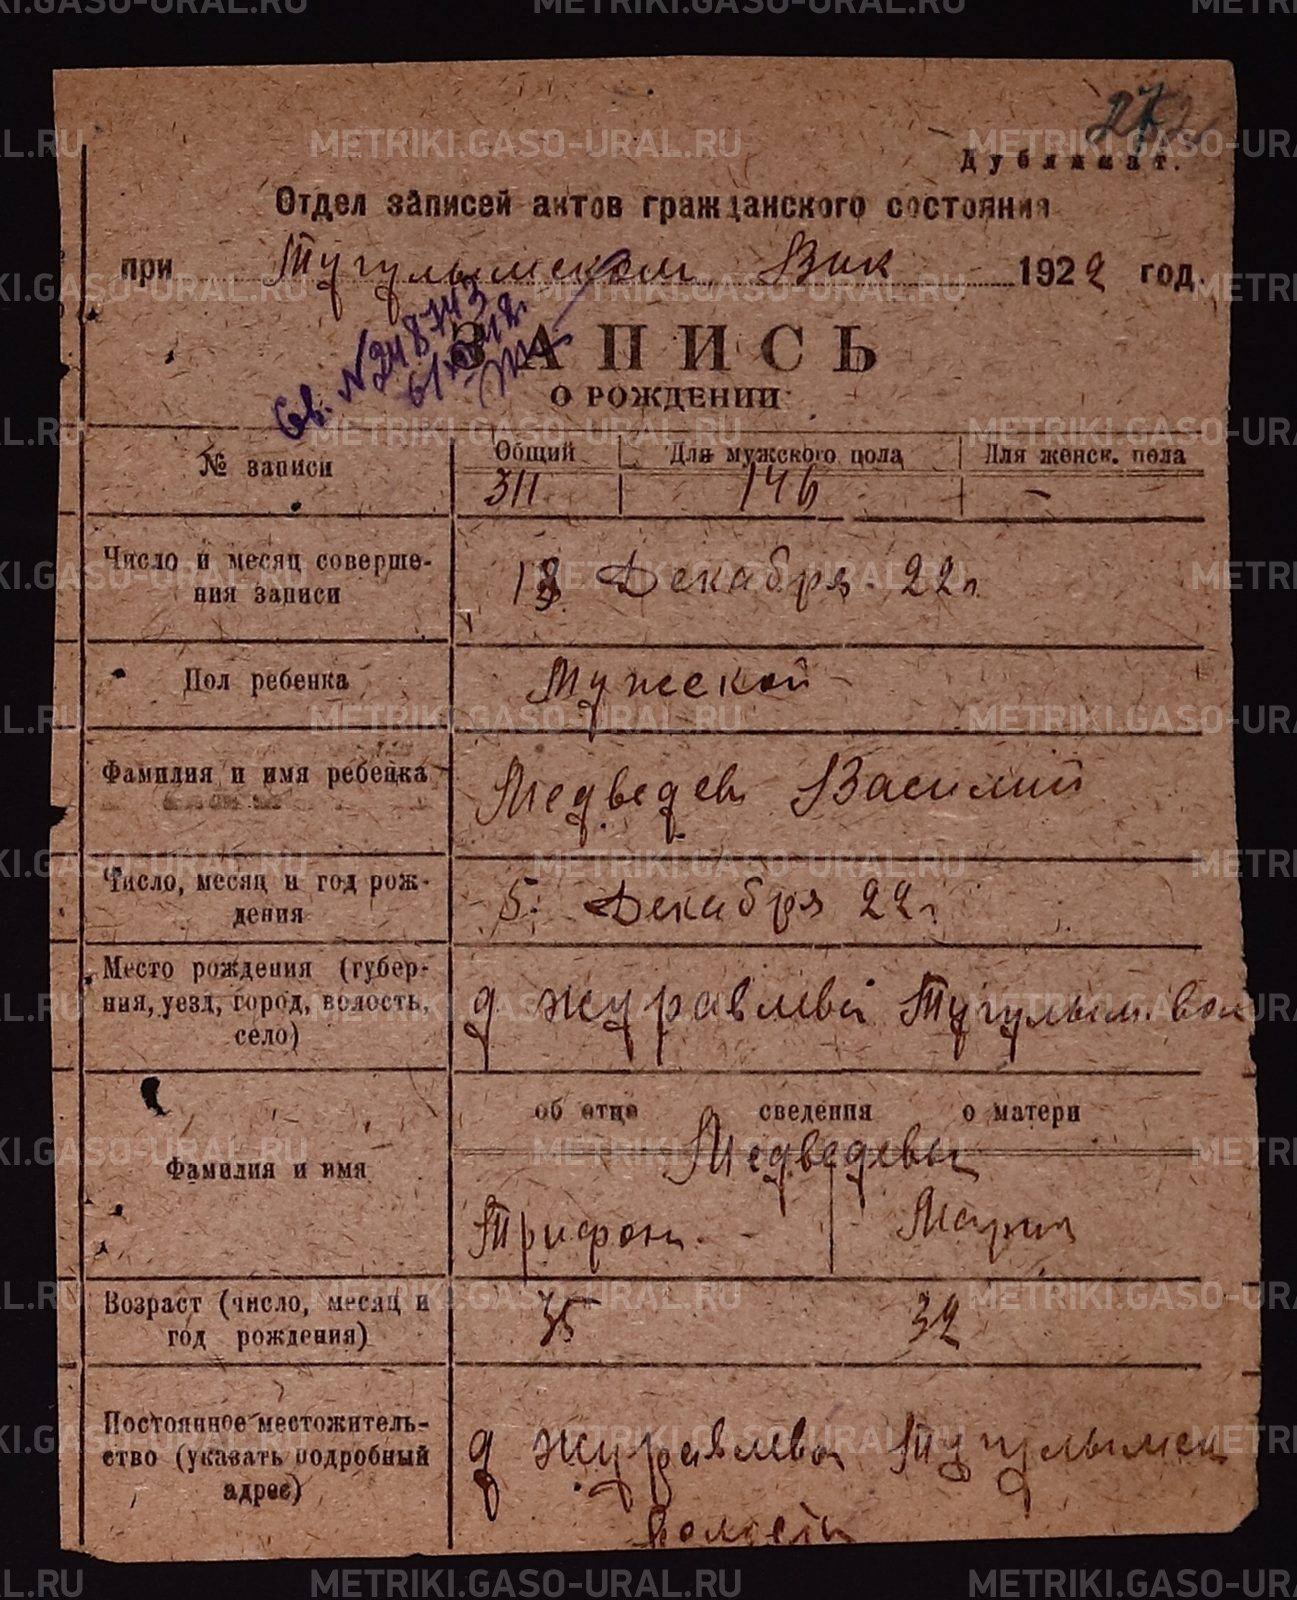 272
Дубликат.
Отдел записей актов гражданского состояния
при Тугулымском Вик 1922 год.
Св. № 248743
ЗАПИСЬ
О РОЖДЕНИИ
№ записи
Общий Для мужского пола Для женск. пола
311 146 –
Число и месяц соверше-
ния записи
18 Декабря 22 г
Пол ребенка
Мужской
Фамилия и имя ребенка
Медведев Василий
Число, месяц и год рож-
дения
5 Декабря 22 г
Место рождения (губер-
ния, уезд, город, волость,
село)
д Журавлева Тугулым. вол
об отце сведения о матери
Фамилия и имя
Медведевы
Трифон Мария
Возраст (число, месяц и
год рождения)
35 32
Постоянное местожитель-
ство (указать подробный
адрес)
д Журавлева Тугулымск
волости
METRIKI.GASO-URAL.RU